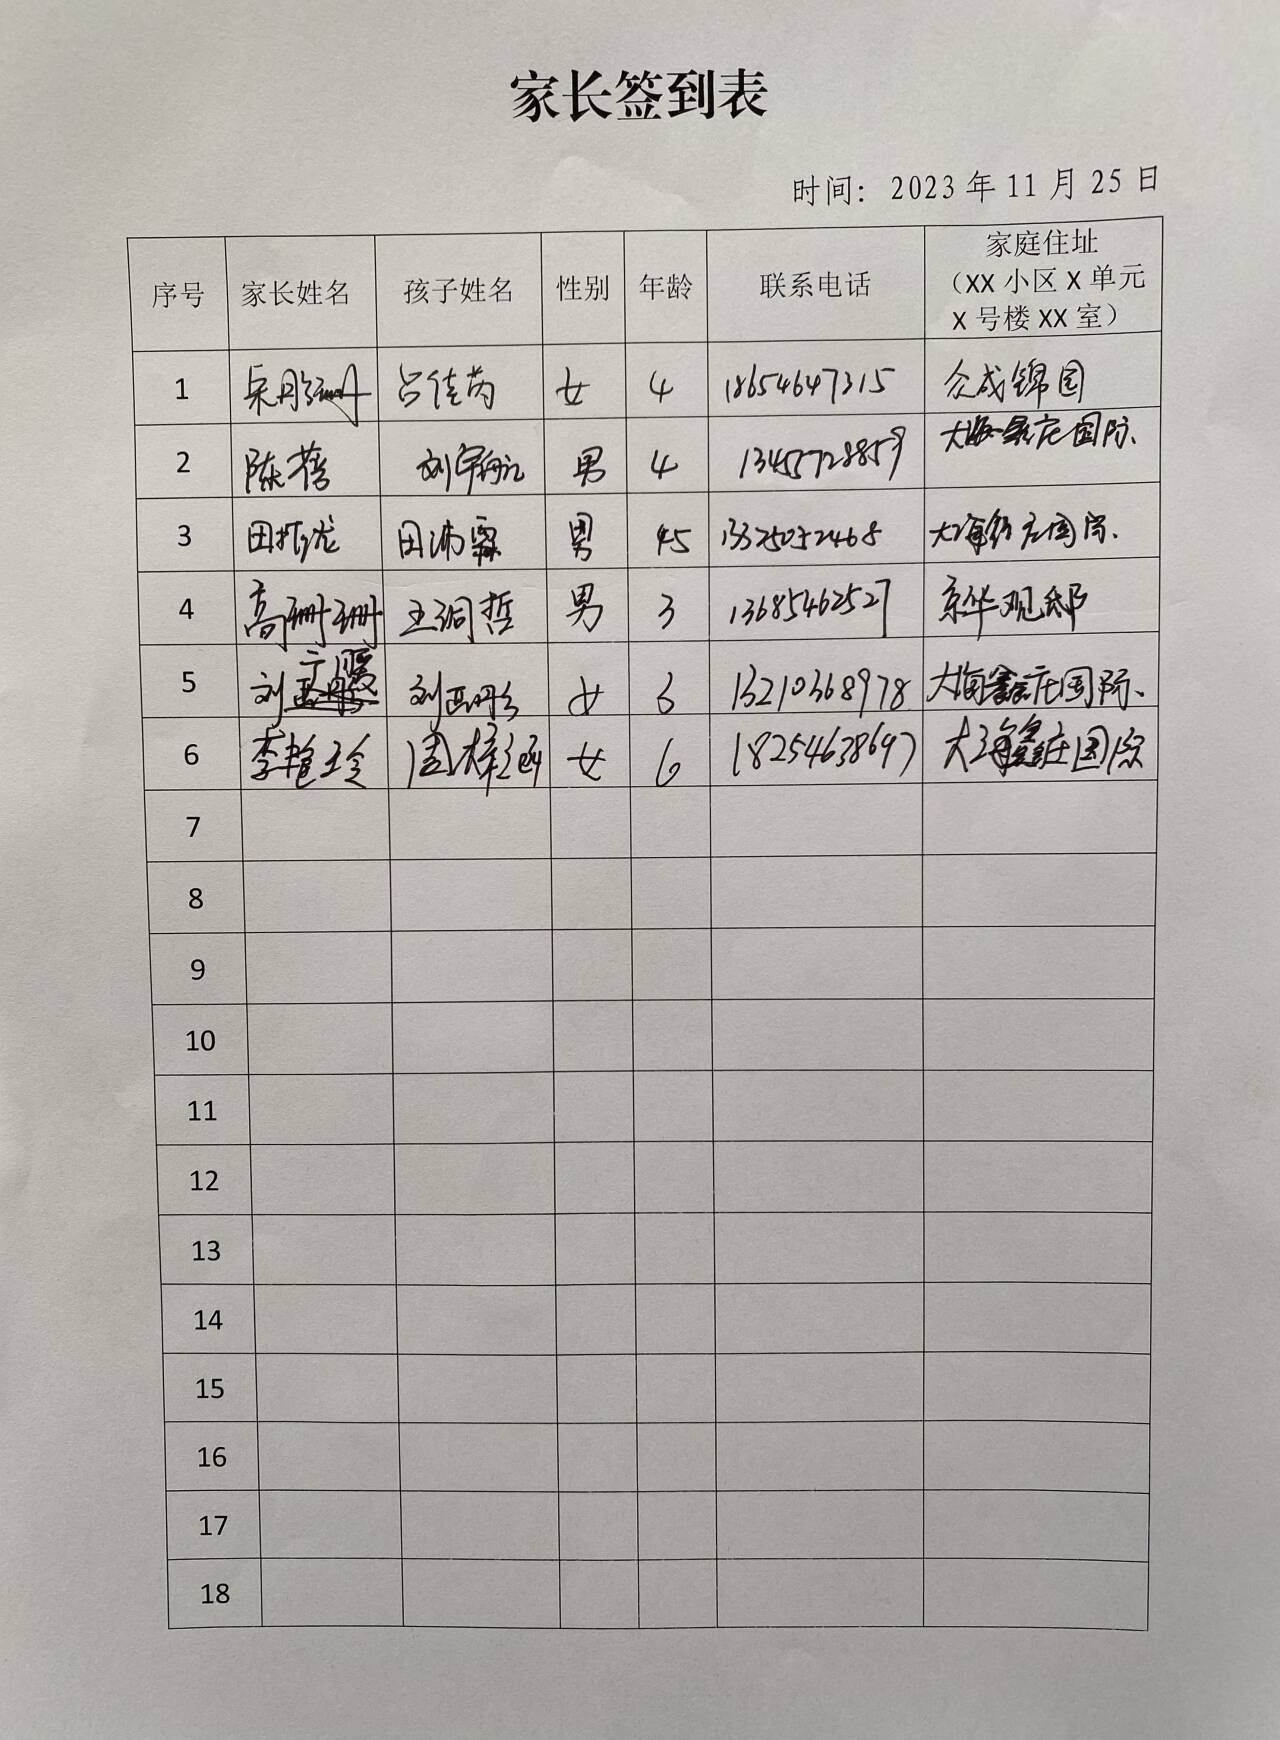 家长签到表
时间：2023年11月25日
序号 家长姓名 孩子姓名 性别 年龄 联系电话 家庭住址
（XX小区X单元
X号楼XX室）
1 吕佳芮 女 4 18654647315 众成锦园
2 陈蓓 刘宇航 男 4 13455728859 大海鑫庄国际、
3 田振龙 田沛霖 男 4.5 13325052468 大海鑫庄国际、
4 高珊珊 王润哲 男 3 13685462527 京华观邸
5 刘 刘 女 3 13210368978 大海鑫庄国际、
6 李艳玲 周梓涵 女 6 18254638697 大海鑫庄国际
7
8
9
10
11
12
13
14
15
16
17
18